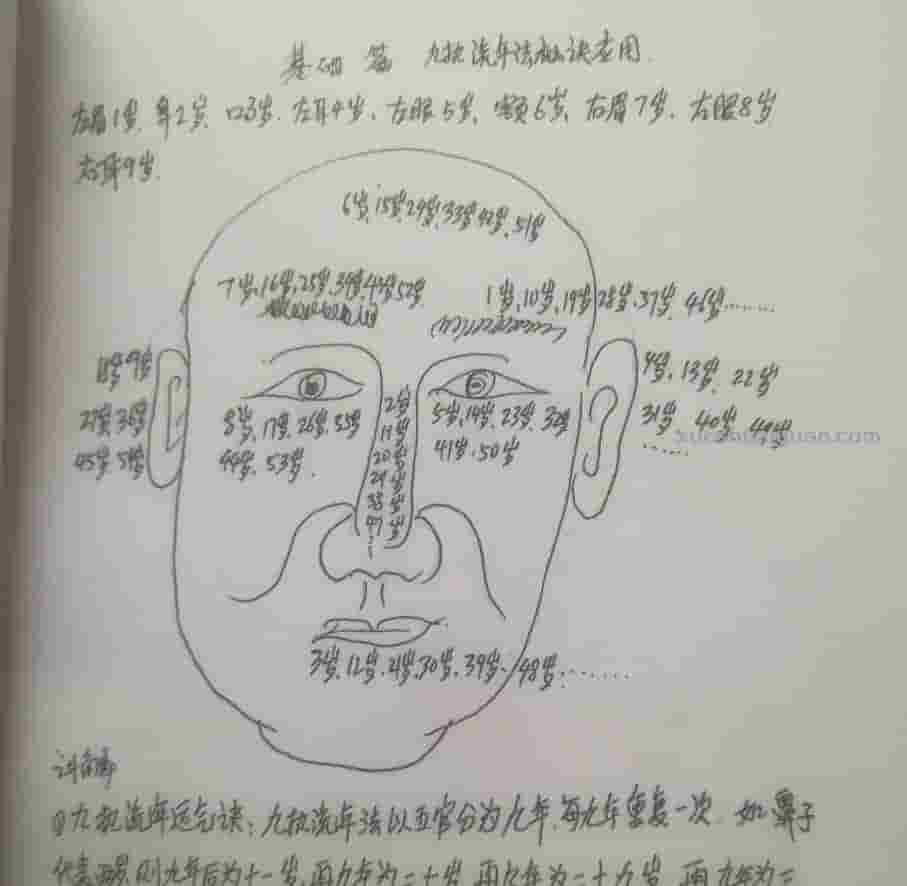 基础篇 九执流年法秘诀应用
左眉1岁、鼻2岁、口3岁、左耳4岁、左眼5岁、额6岁、右眉7岁、右眼8岁
右耳9岁.
6岁,15岁,24岁,33岁,42岁、51岁
7岁,16岁,25岁,34岁,43岁52岁
1岁,10岁,19岁28岁,37岁、46岁........
18岁9岁
4岁、13岁、22岁
27岁,36岁
31岁、40岁、49岁
45岁,54岁
......
8岁、17岁、26岁、35岁
44岁、53岁.
2岁
11岁
20岁
29岁
38岁
47岁
5岁,14岁、23岁、32岁
41岁、50岁
3岁、12岁、21岁,30岁、39岁、48岁........
①九执流年运气诀:九执流年法以五官分为九年,每九年重复一次.如鼻子
代表两岁,则九年后为十一岁,再九年为二十岁,再九年为二十九岁,再九年为三